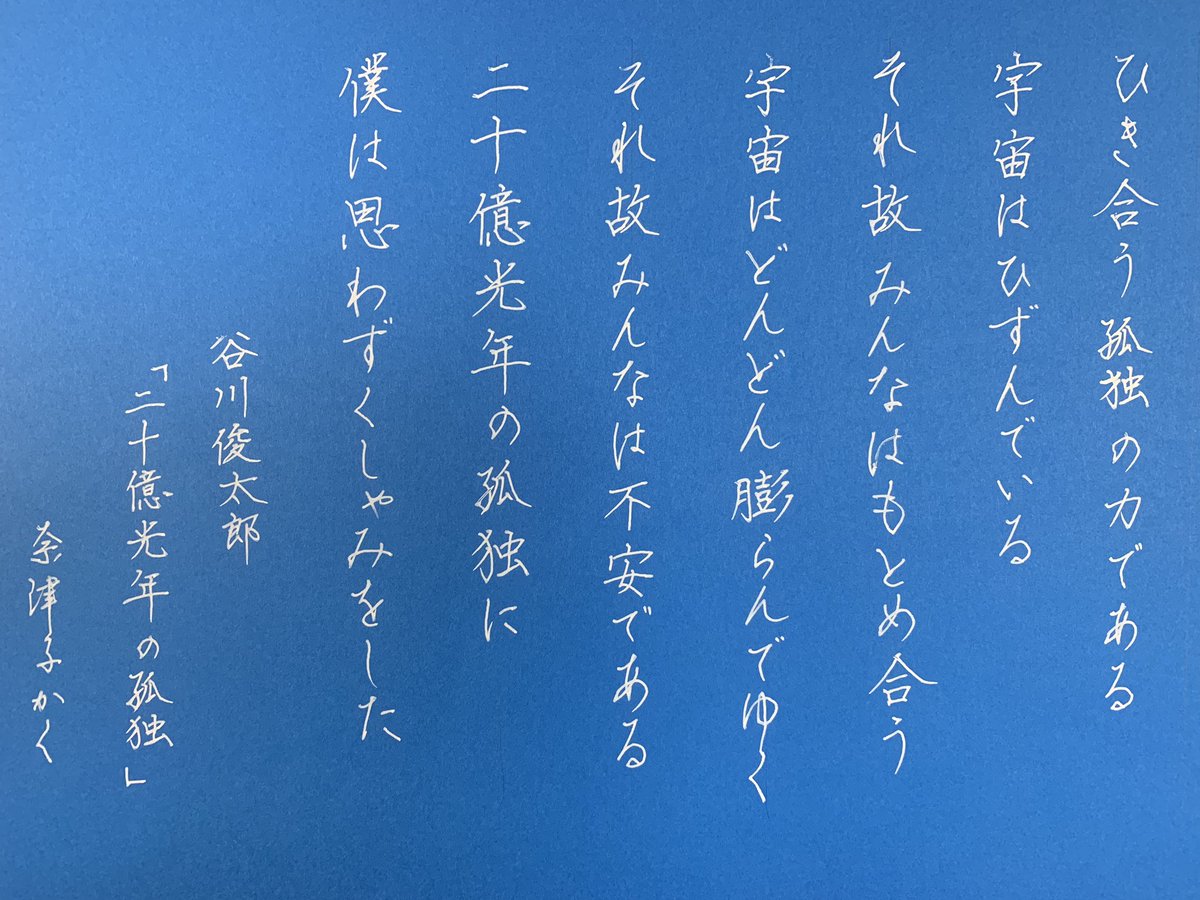 ひき合う孤独の力である
宇宙はひずんでいる
それ故みんなはもとめ合う
宇宙はどんどん膨らんでゆく
それ故みんなは不安である
二十億光年の孤独に
僕は思わずくしゃみをした
谷川俊太郎
「二十億光年の孤独」
奈津子かく